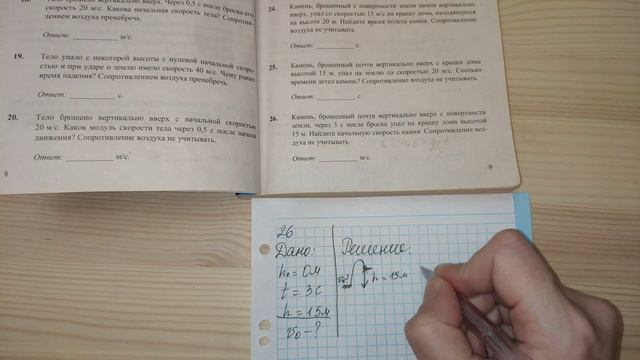 Тело брошено вертикально вверх. Через 0,5 с после броска его
скорость 20 м/с. Какова начальная скорость тела? Сопротив-
лением воздуха пренебречь.
Ответ: м/с.
19. Тело упало с некоторой высоты с нулевой начальной скоро-
стью и при ударе о землю имело скорость 40 м/с. Чему равно
время падения? Сопротивлением воздуха пренебречь.
Ответ: с.
20. Тело брошено вертикально вверх с начальной скоростью
20 м/с. Каков модуль скорости тела через 0,5 с после начала
движения? Сопротивление воздуха не учитывать.
Ответ: м/с.
8
24. Камень, брошенный с поверхности земли почти вертикально
вверх, упал со скоростью 15 м/с на крышу дома, находящуюся
на высоте 20 м. Найдите время полета камня. Сопротивление
воздуха не учитывать.
Ответ: с.
25. Камень, брошенный почти вертикально вверх с крыши дома
высотой 15 м, упал на землю со скоростью 20 м/с. Сколько
времени летел камень? Сопротивление воздуха не учитывать.
Ответ: с.
26. Камень, брошенный почти вертикально вверх с поверхности
земли, через 3 с после броска упал на крышу дома высотой
15 м. Найдите начальную скорость камня. Сопротивление воз-
духа не учитывать.
Ответ: м/с.
9
26
Дано:
h₀ = 0м
t = 3с
h = 15м
v₀ - ?
Решение:
v₀?
h = 15м